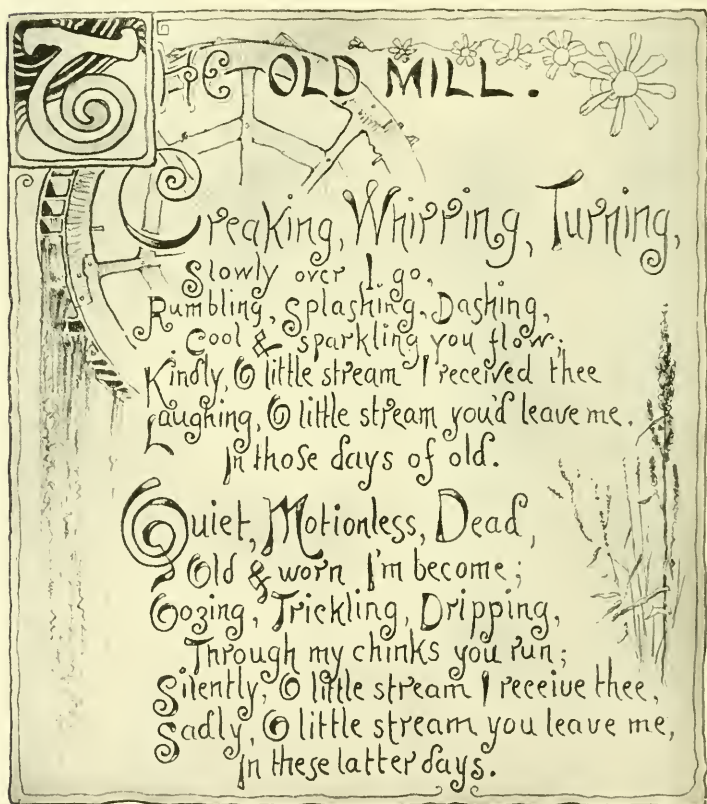 THE OLD MILL.
Creaking, Whirring, Turning,
Slowly over I go,
Rumbling, Splashing, Dashing,
Cool & sparkling you flow;
Kindly, O little stream I received thee
Laughing, O little stream you'd leave me.
In those days of old.
Quiet, Motionless, Dead,
Old & worn I'm become;
Oozing, Trickling, Dripping,
Through my chinks you run;
Silently, O little stream I receive thee,
Sadly, O little stream you leave me,
In these latter days.